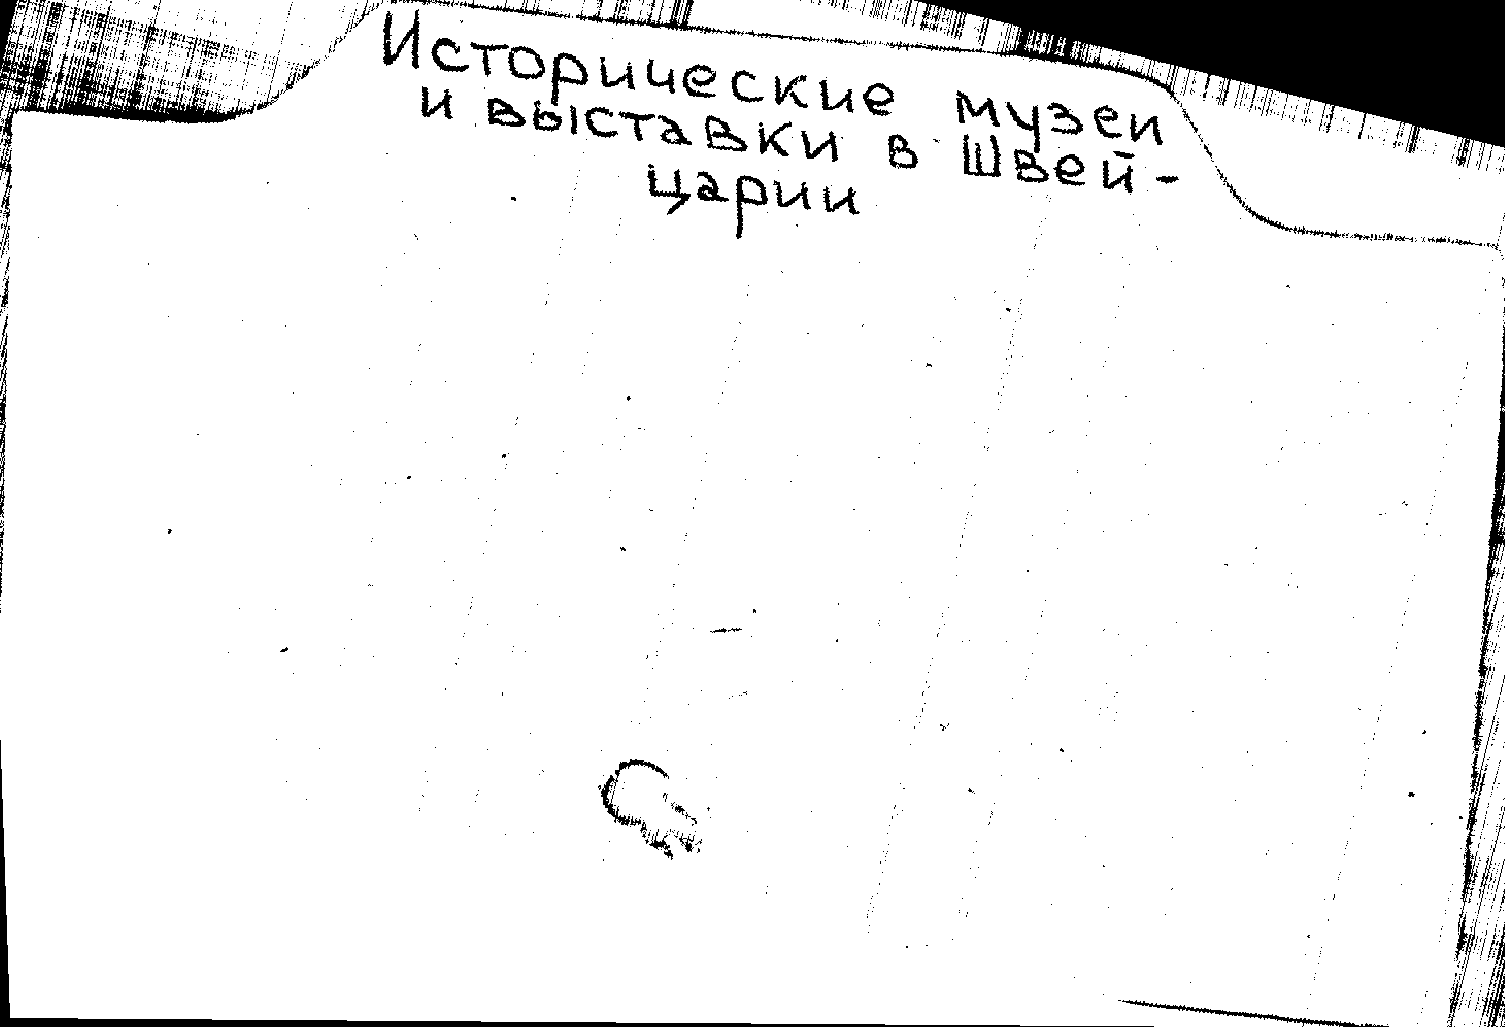 Исторические музеи
и выставки в Швей-
царии